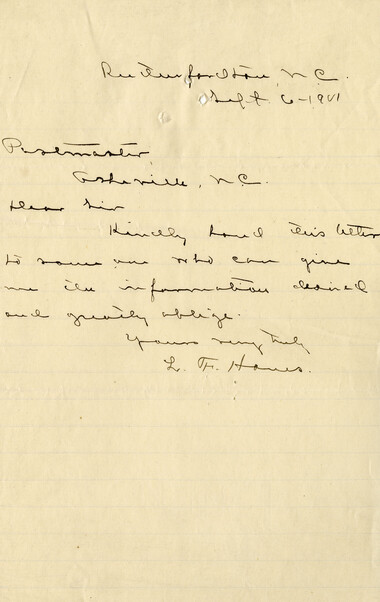 Rutherfordton, N.C.
Sept 6-1901
Postmaster,
Asheville, N.C.
Dear Sir
Kindly hand this letter
to some one who can give
me the information desired
and greatly oblige.
Yours very truly
L. F. Hanes.